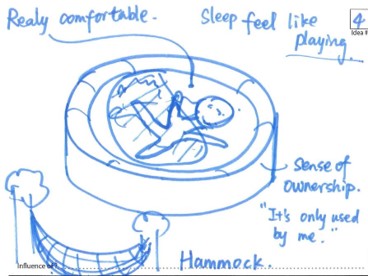 Realy comfortable.
Sleep feel like
playing.
4
Idea #
Sense of
ownership.
"It's only used
by me."
Hammock.
Influence of